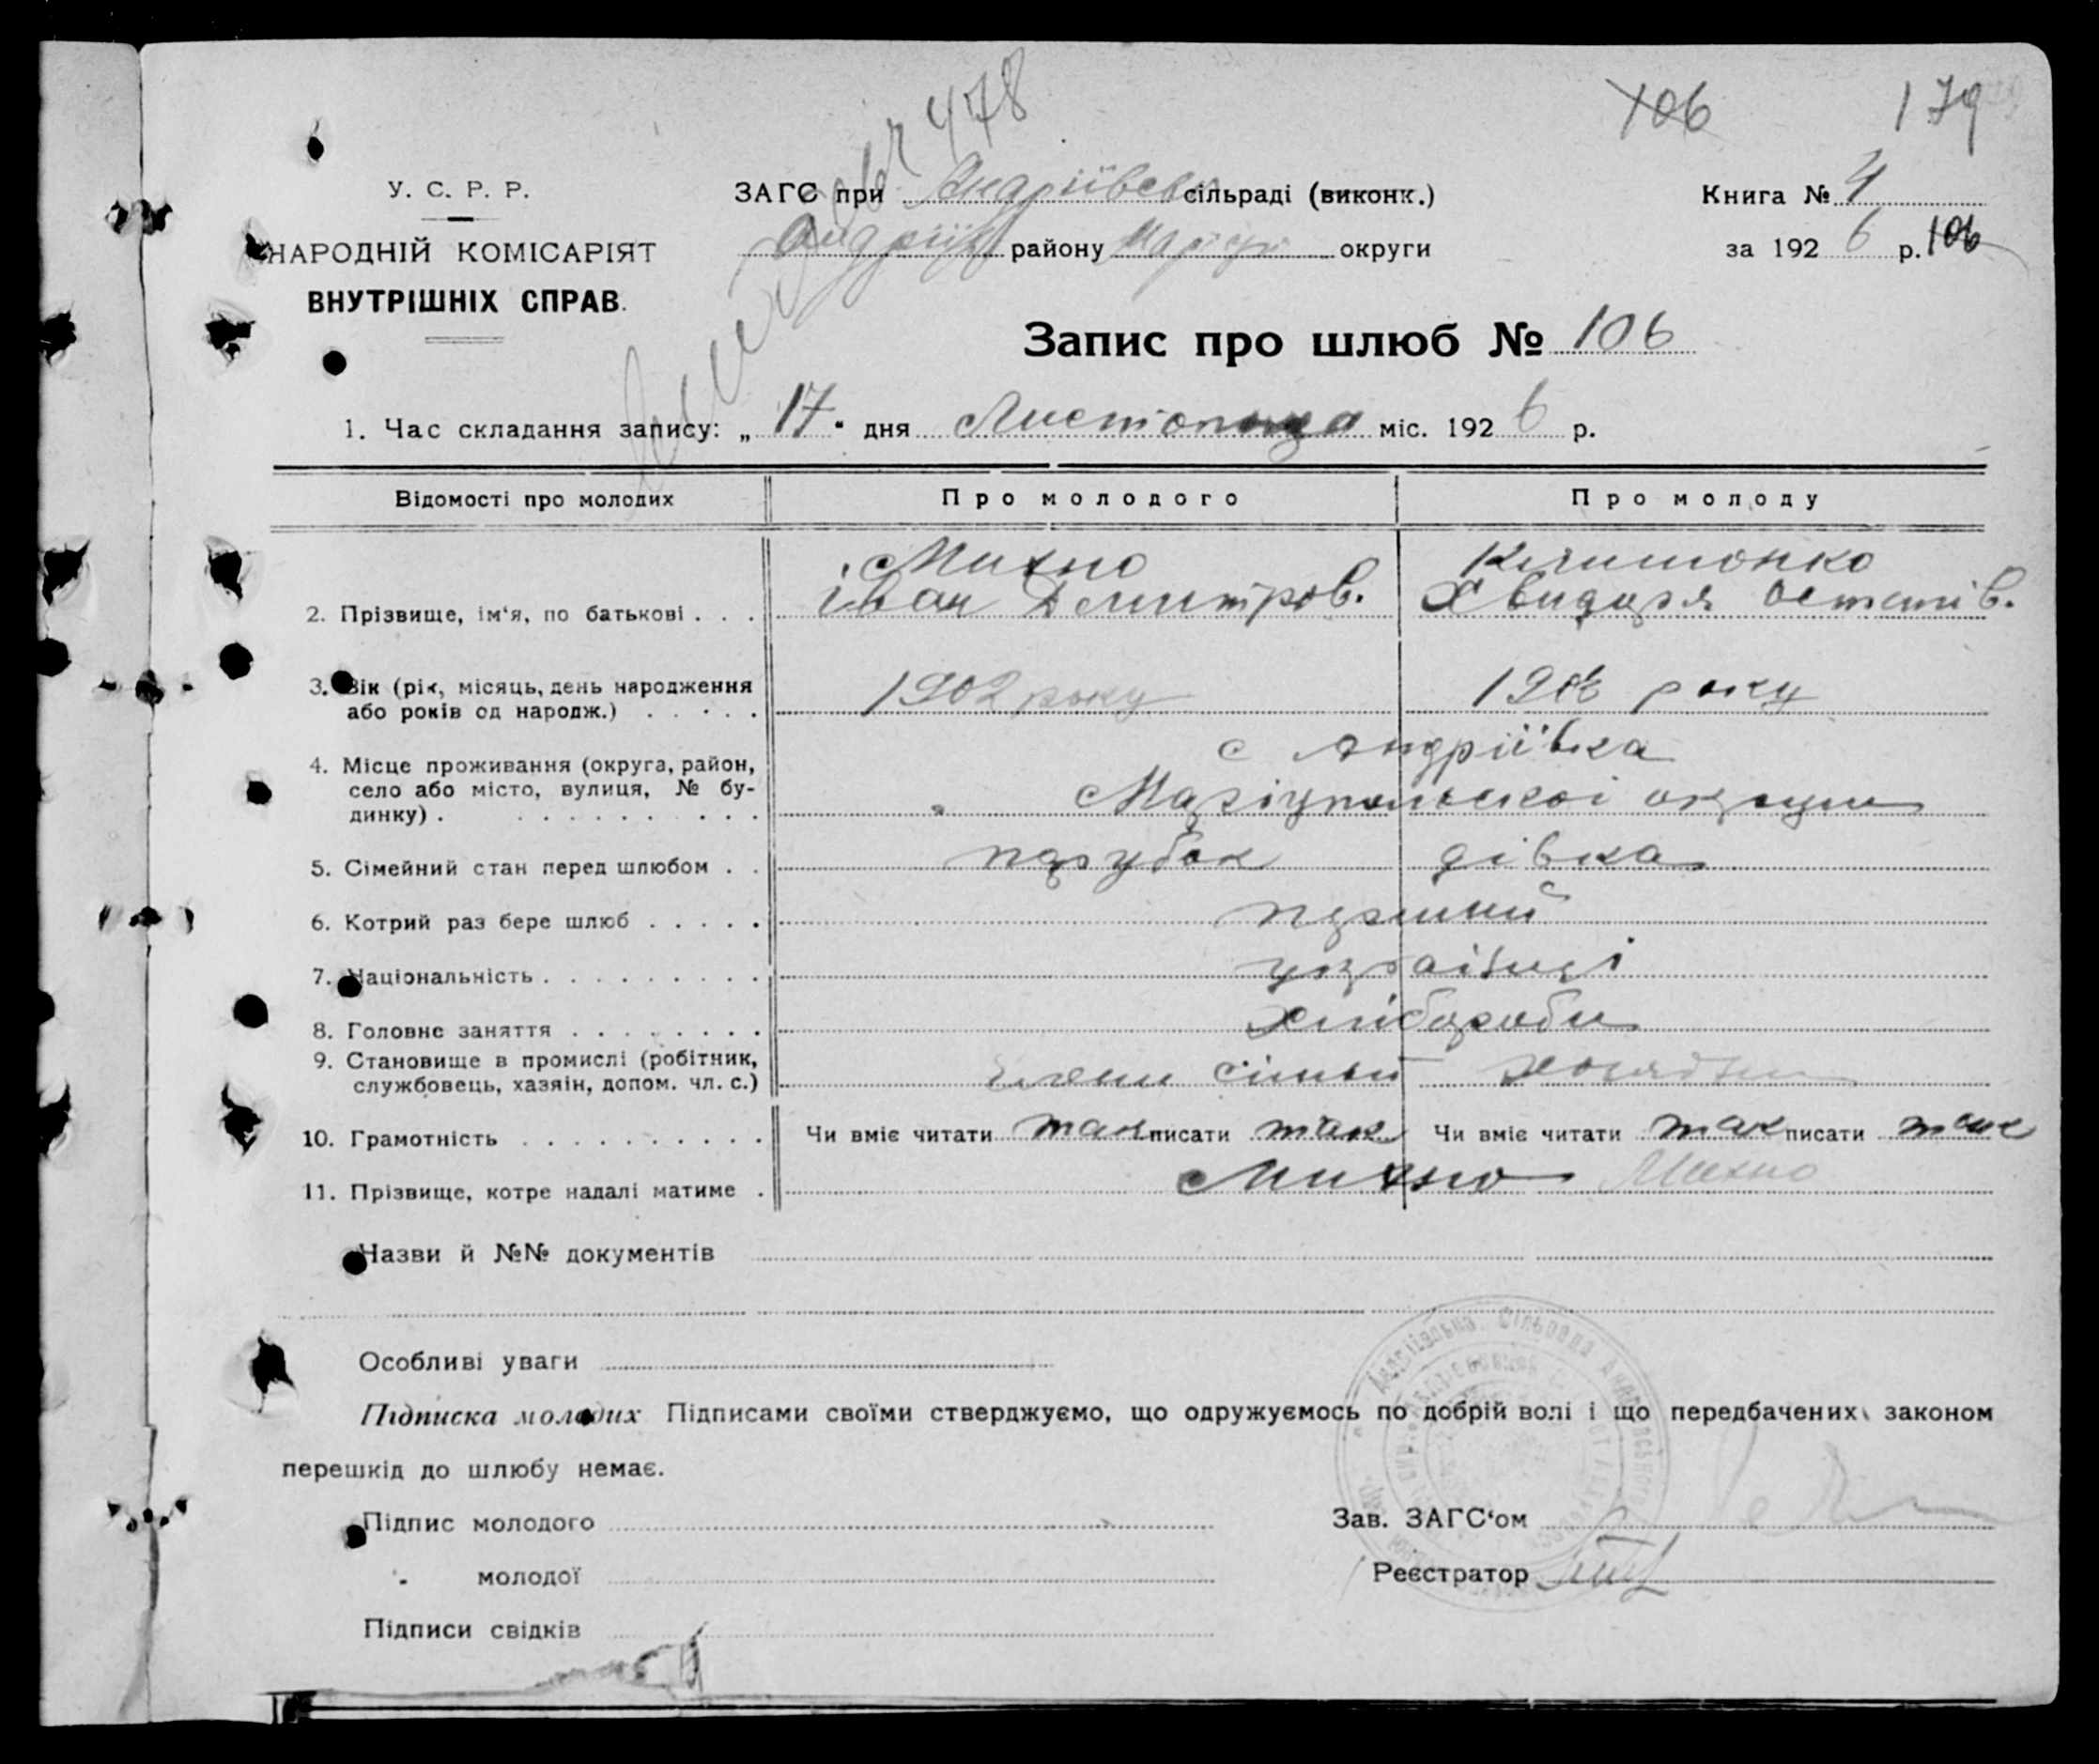 478
106 179
У. С. Р. Р.
НАРОДНІЙ КОМІСАРІЯТ
ВНУТРІШНІХ СПРАВ.
ЗАГС при Андріївськ сільраді (виконк.)
Андріїв району Маріуп округи
Книга № 4
за 1926 р. 106
Запис про шлюб № 106
1. Час складання запису: „ 17 “ дня Листопада міс. 1926 р.
Відомості про молодих Про молодого Про молоду
Михно
2. Прізвище, ім‘я, по батькові . . . іван Дмитров. Хвидоря Остапів.
3. Вік (рік, місяць, день народження
або років од народж.) . . . . . 1902 року 1906 року
с Андріївка
4. Місце проживання (округа, район,
село або місто, вулиця, № бу-
динку) . . . . . . . . . . Маріупольскоі округи
5. Сімейний стан перед шлюбом . . парубок дівка
6. Котрий раз бере шлюб . . . . . перший
7. Національність . . . . . . . . . українці
8. Головне заняття . . . . . . . . хлібороби
9. Становище в промислі (робітник,
службовець, хазяін, допом. чл. с.) члени сімьи
10. Грамотність . . . . . . . . . . Чи вміє читати так писати так Чи вміє читати так писати так
11. Прізвище, котре надалі матиме . Михно Михно
Назви й №№ документів
Особливі уваги
Підписка молодих Підписами своїми стверджуємо, що одружуємось по добрій волі і що передбачених законом
перешкід до шлюбу немає.
Підпис молодого
Зав. ЗАГС‘ом
" молодої
Реєстратор
Підписи свідків